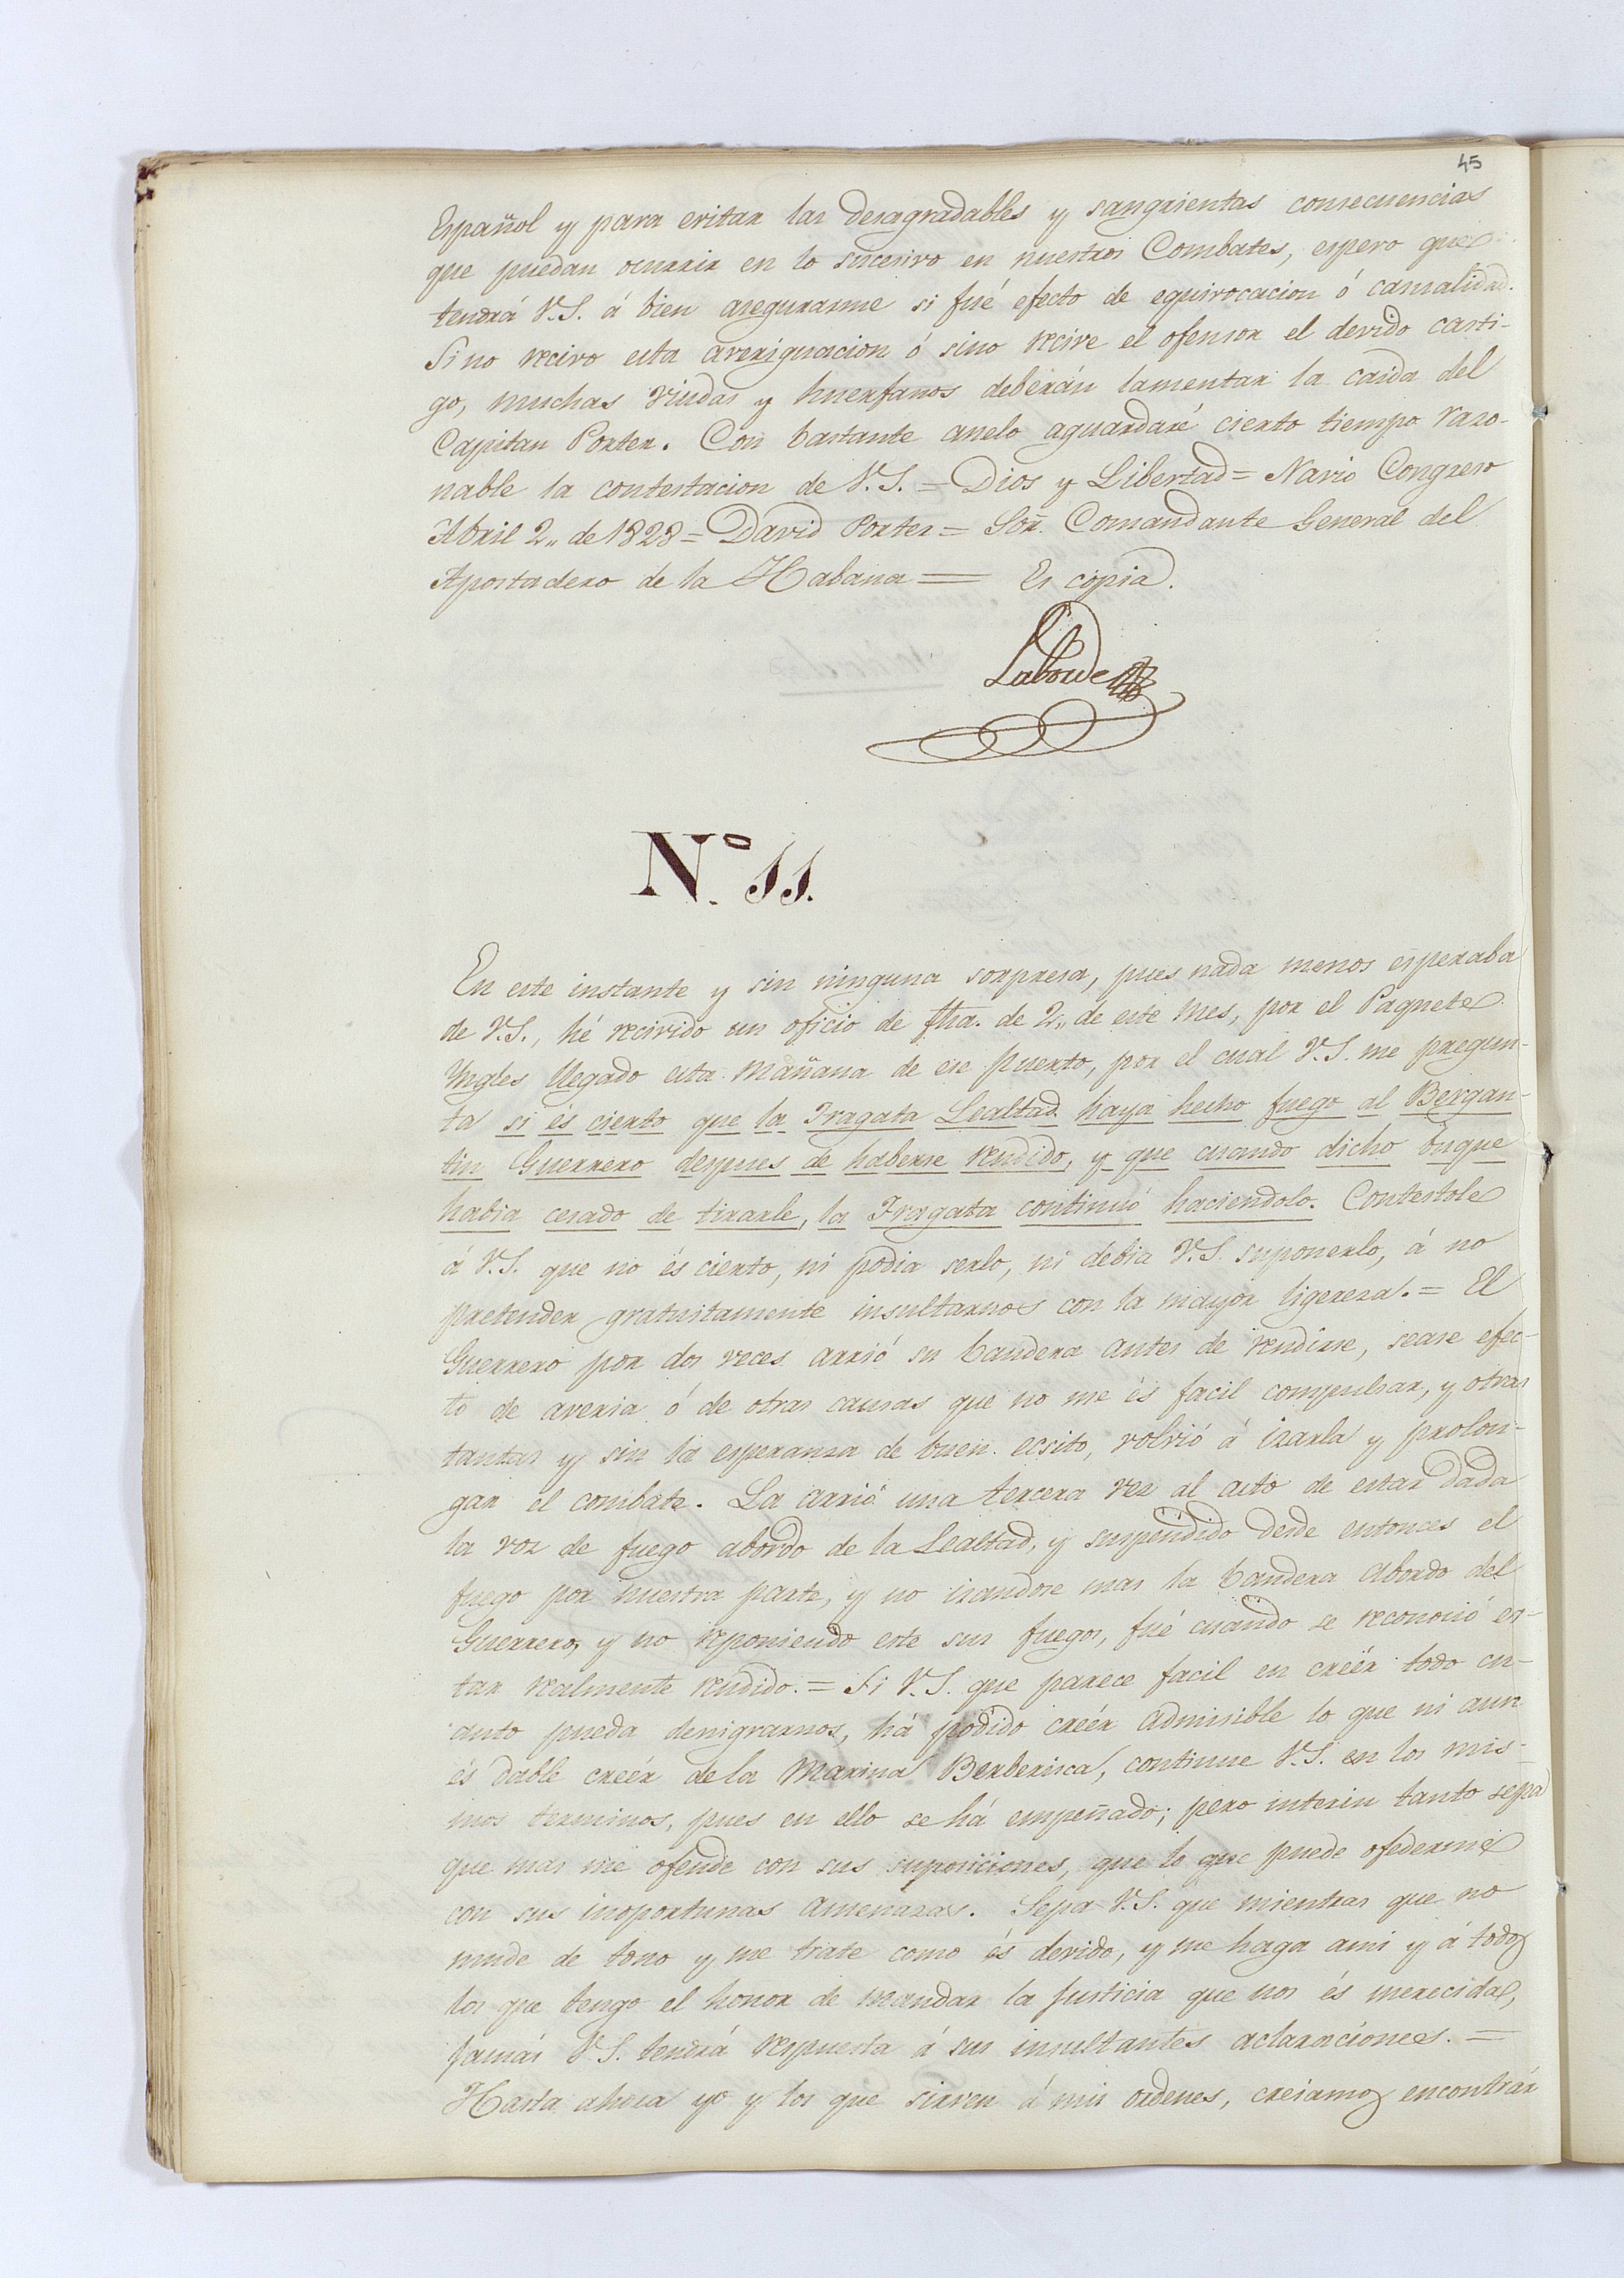 45
Español y para evitar las desagradables y sangrientas consecuencias
que puedan ocurrir en lo sucesivo en nuestros Combates, espero que
tendrá V.S. á bien asegurarme si fué efecto de equivocacion ó casualidad.
Si no recivo esta averiguacion ó sino recive el ofensor el devido casti-
go, muchas viudas y huerfanos deberán lamentar la caida del
Capitan Porter. Con bastante anelo aguardaré cierto tiempo razo-
nable la contestacion de V.S. = Dios y Libertad = Navio Congreso
Abril 2,, de 1828 = David Porter = Sor. Comandante General del
Apostadero de la Habana = Es copia.
Laborde
No. 11.
En este instante y sin ninguna sorpresa, pues nada menos esperaba
de V.S., hé recivido un oficio de fha. de 2,, de este mes, por el Paquete
Yngles llegado esta mañana de ese Puerto, por el cual V.S. me pregun-
ta si és cierto que la Fragata Lealtad haya hecho fuego al Bergan-
tin Guerrero despues de haberse rendido, y que cuando dicho buque
habia cesado de tirarle, la Fragata continuó haciendolo. Contestole
á V.S. que no és cierto, ni podia serlo, ni debia V.S. suponerlo, á no
pretender gratuitamente insultarnos con la mayor ligereza. = El
Guerrero por dos veces arrió su bandera antes de rendirse, sease efec-
to de averia ó de otras causas que no me és facil compulsar, y otras
tantas y sin la esperanza de buen ecsito, volvió á izarla y prolon-
gar el combate. La arrió una tercera vez al acto de estar dada
la voz de fuego abordo de la Lealtad, y suspendido desde entonces el
fuego por nuestra parte, y no izandose mas la bandera abordo del
Guerrero, y no reponiendo este sus fuegos, fué cuando se reconoció es-
tar realmente rendido. = Si V.S. que parece facil en creér todo cu-
anto pueda denigrarnos, há podido creér admisible lo que ni aun
és dable creér de la Marina Berberisca, continue V.S. en los mis-
mos terminos, pues en ello se há empeñado; pero interin tanto sepa
que mas me ofende con sus suposiciones, que lo que puede ofederme
con sus inoportunas amenazas. Sepa V.S. que mientras que no
mude de tono y me trate como és devido, y me haga ami y á todos
los que tengo el honor de mandar la justicia que nos és merecida,
jamás V.S. tendrá respuesta á sus insultantes aclaraciones. =
Hasta ahora yo y los que sirven á mis ordenes, creiamos encontrár